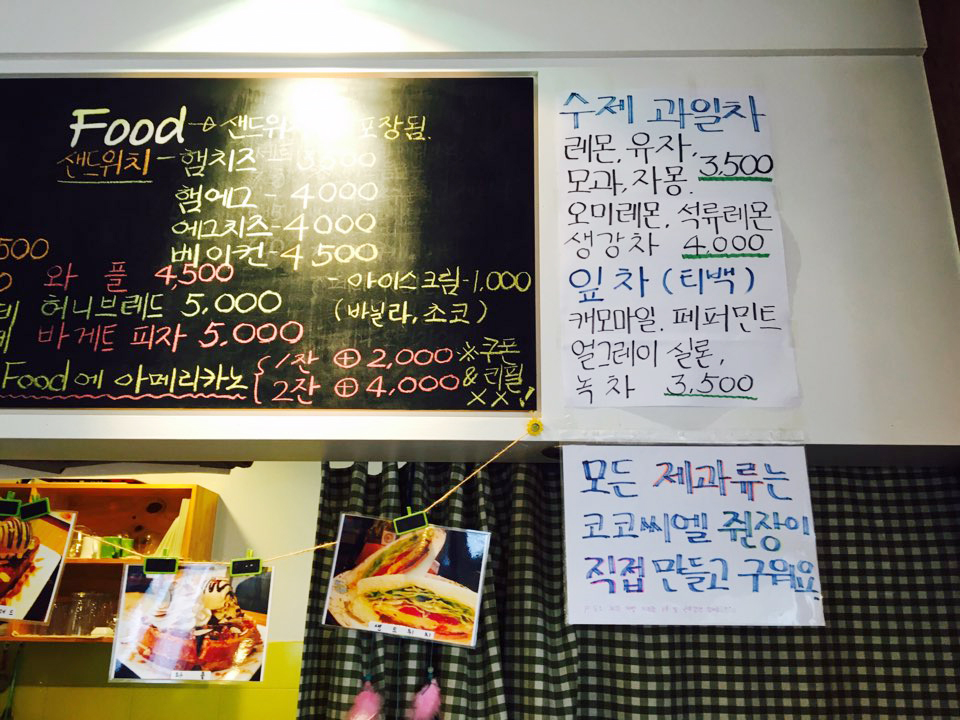 Food → 샌드위 포장됨.
샌드위치 - 햄치즈 3,500
햄에그 - 4000
에그치즈 - 4000
베이컨 - 4500
500
와플 4,500
- 아이스크림 - 1,000
(바닐라, 초코)
허니브레드 5,000
바게트 피자 5,000
Food에 아메리카노 { 1잔 ⊕ 2,000
2잔 ⊕ 4,000
※쿠폰
& 리필
XX!
수제 과일차
레몬, 유자,
모과, 자몽. 3,500
오미레몬, 석류레몬
생강차 4,000
잎차 (티백)
캐모마일. 페퍼민트
얼그레이 실론,
녹차 3,500
모든 제과류는
코코씨엘 쥔장이
직접 만들고 구워요
와 플